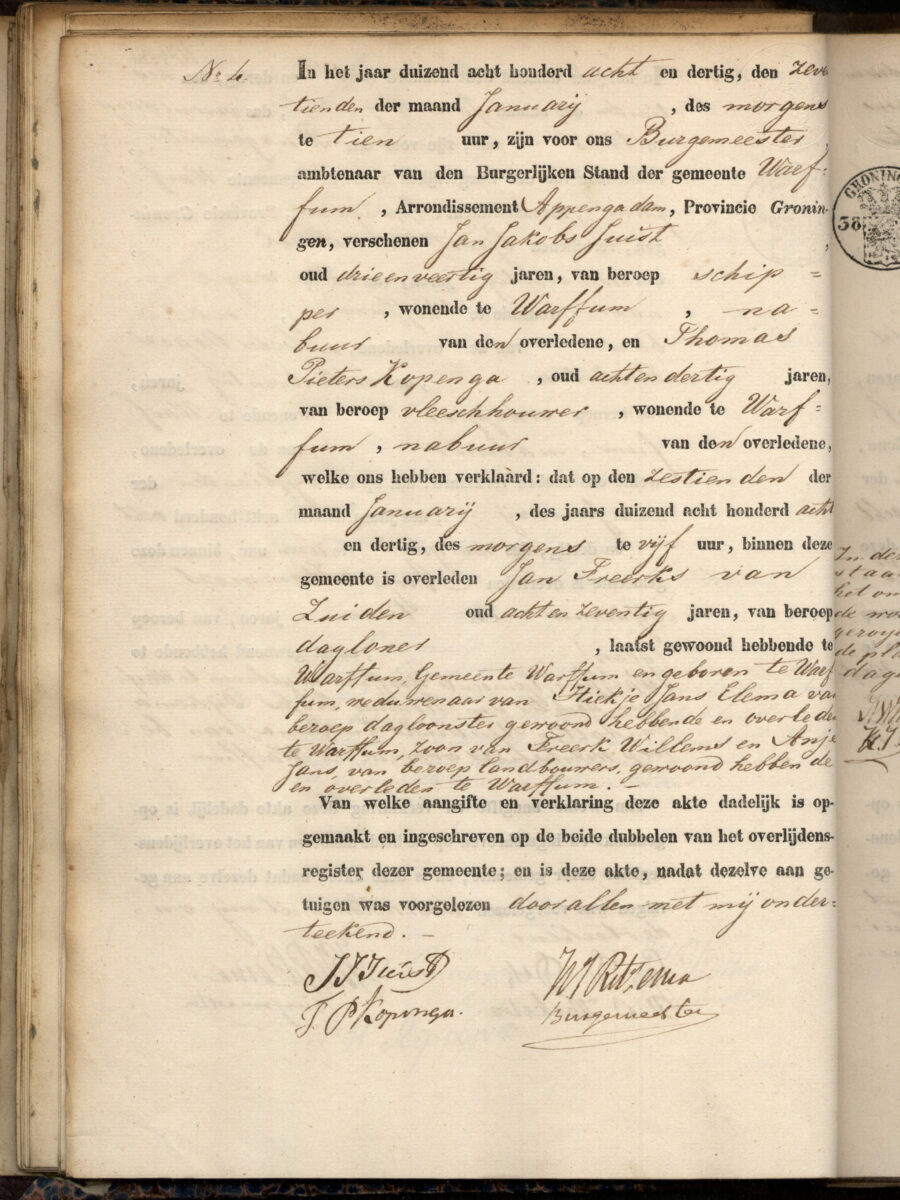 No 4.
In het jaar duizend acht honderd acht en dertig, den zeve
tienden der maand Januarij , des morgens
te tien uur, zijn voor ons Burgemeester,
ambtenaar van den Burgerlijken Stand der gemeente Warf-
fum, Arrondissement Appengadam, Provincie Gronin-
gen, verschenen Jan Jakobs Juist ,
oud drieenveertig jaren, van beroep schip=
per , wonende te Warffum , na=
buur van den overledene, en Thomas
Pieters Kopenga , oud achtendertig jaren,
van beroep vleeschhouwer , wonende te Warf=
fum , nabuur van den overledene,
welke ons hebben verklaard: dat op den zestienden der
maand Januarij , des jaars duizend acht honderd acht
en dertig, des morgens te vijf uur, binnen deze
gemeente is overleden Jan Freerks van
Zuiden oud achtenzeventig jaren, van beroep
dagloner , laatst gewoond hebbende te
Warffum, Gemeente Warffum en geboren te Warf
fum, weduwenaar van Hiekje Jans Elema van
beroep dagloonster gewoond hebbende en overlede
te Warffum, zoon van Freerk Willems en Anje
Jans, van beroep landbouwers, gewoond hebbende
en overleden te Warffum. -
Van welke aangifte en verklaring deze akte dadelijk is op-
gemaakt en ingeschreven op de beide dubbelen van het overlijdens-
register dezer gemeente; en is deze akte, nadat dezelve aan ge-
tuigen was voorgelezen door allen met mij onder-
teekend. -
J J Juist
T. P Kopenga.
Ritzema
Burgemeester
GRONING
38